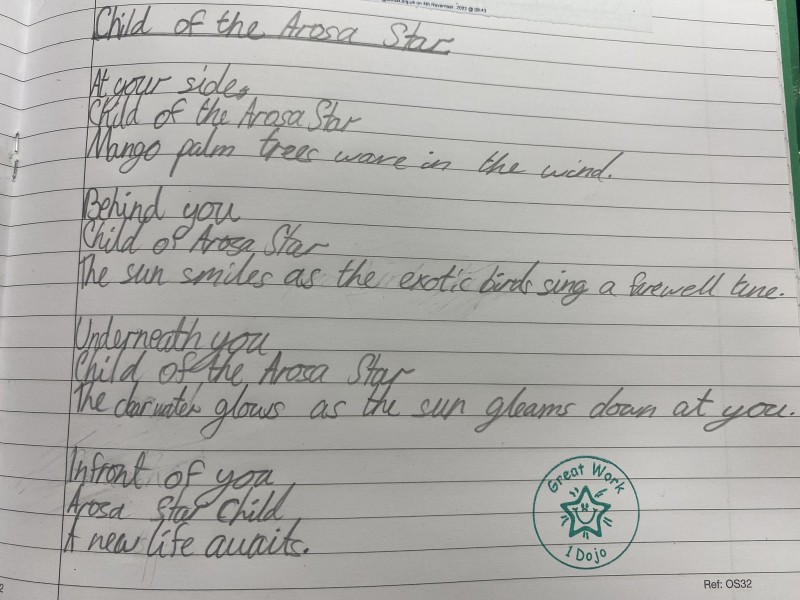 on 4th November, 2023 @ 09:43
Child of the Arosa Star
At your side,
Child of the Arosa Star
Mango palm trees wave in the wind.
Behind you
Child of Arosa Star
The sun smiles as the exotic birds sing a farewell tune.
Underneath you
Child of the Arosa Star
The clear water glows as the sun gleams down at you.
Infront of you
Arosa Star Child
A new life awaits.
Great Work
1 Dojo
2
Ref: OS32